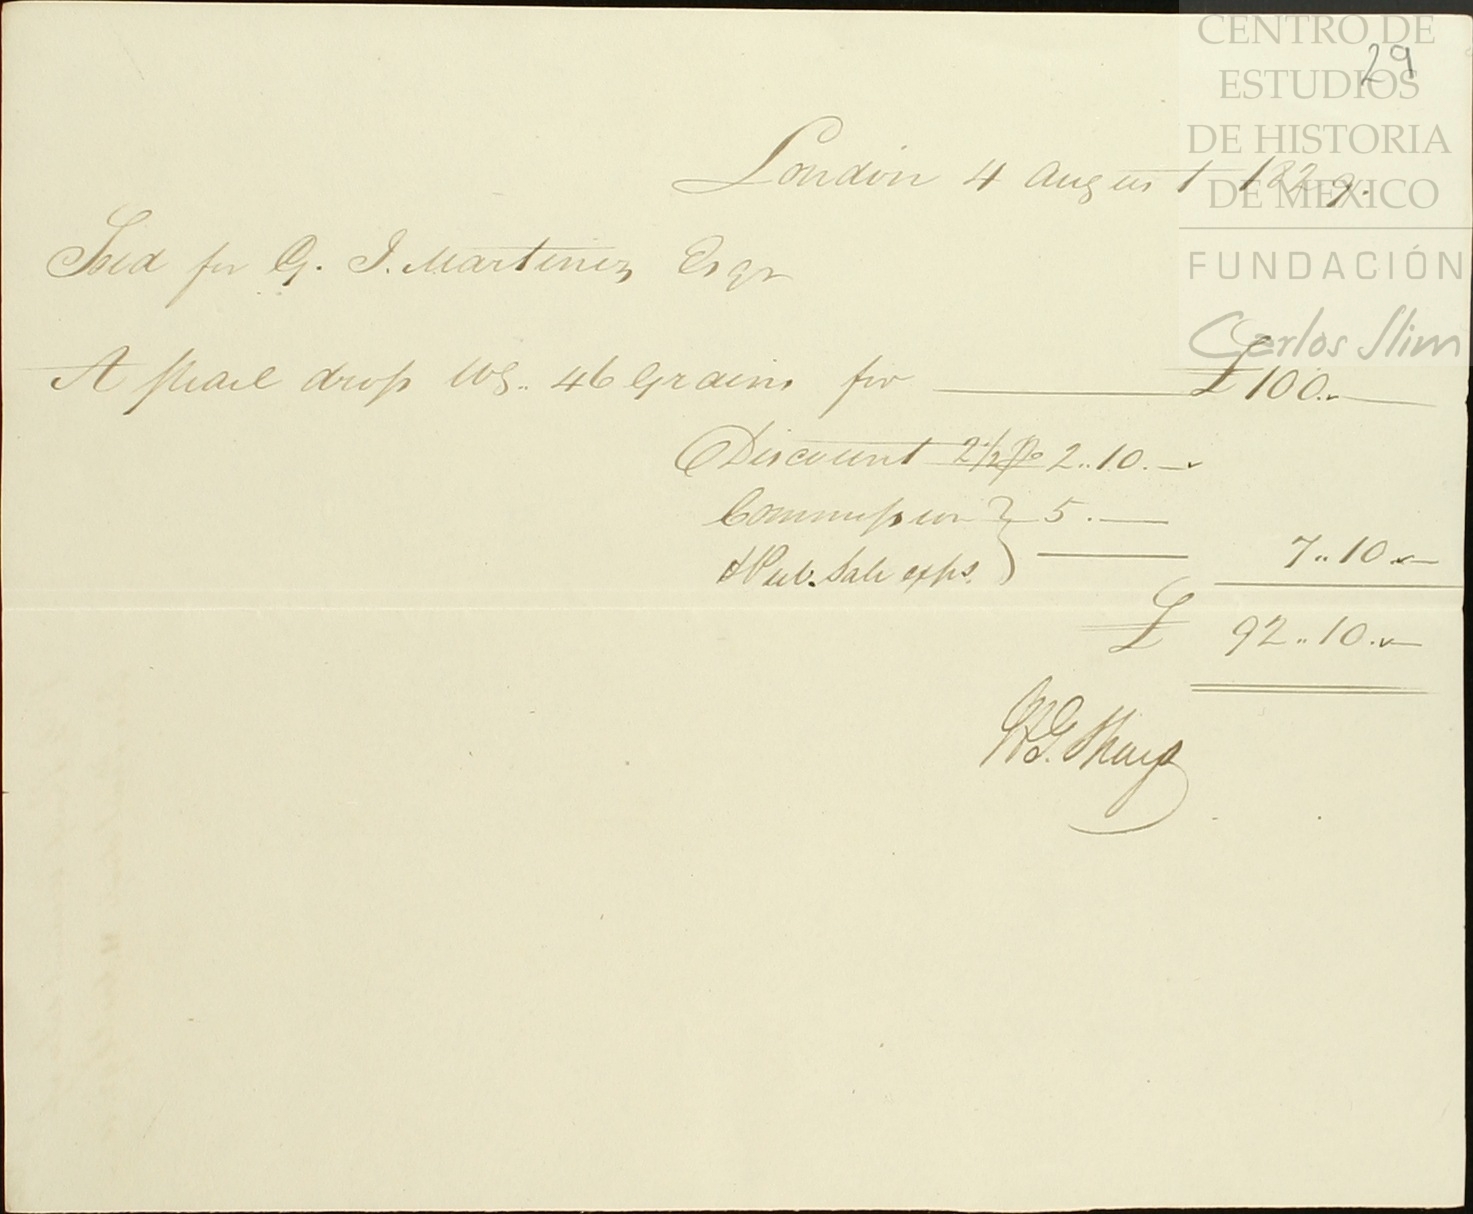 CENTRO DE
ESTUDIOS
DE HISTORIA
DE MEXICO
FUNDACIÓN
Carlos Slim
29
London 4 August 1829.
Sold for G. J. Martinez Esqr
A pearl drop Wg.. 46 Grains for £100..—
Discount 2½ P% 2..10.—
Commission } 5.—
& Pub. Sale exps. } 7..10..—
£ 92..10..—